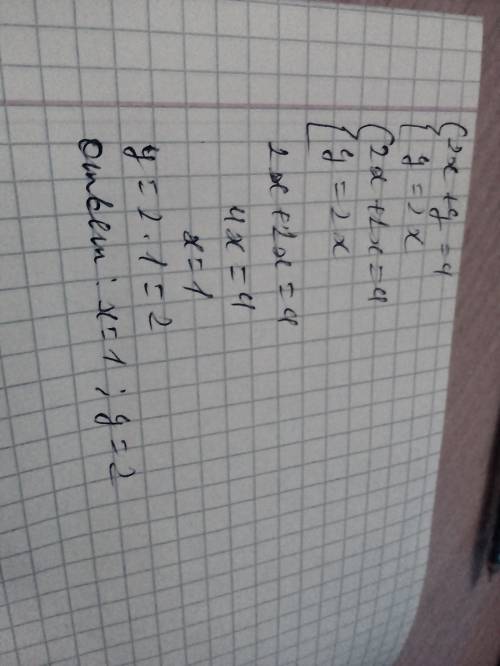 {2x + y = 4
{y = 2x
{2x + 2x = 4
{y = 2x
2x + 2x = 4
4x = 4
x = 1
y = 2 · 1 = 2
Ответ: x = 1 ; y = 2